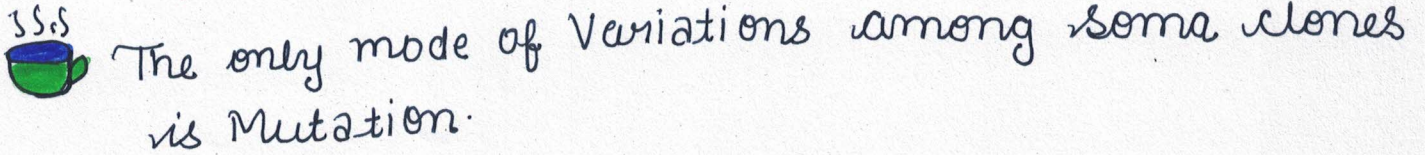 The only mode of Variations among soma clones
is Mutation.